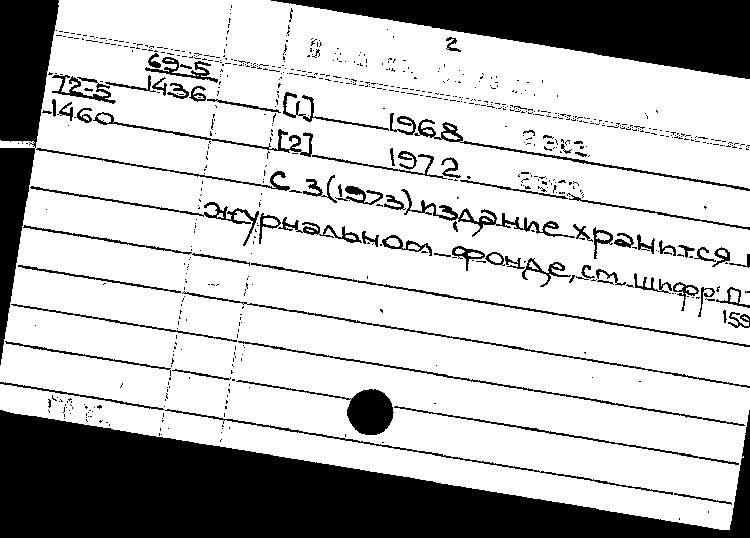 2
69-5
1436
72-5
1460
[1] 1968 2 экз
[2] 1972. 2 экз
С 3(1973) издание хранится
журнальном фонде, см. шифр П-
159